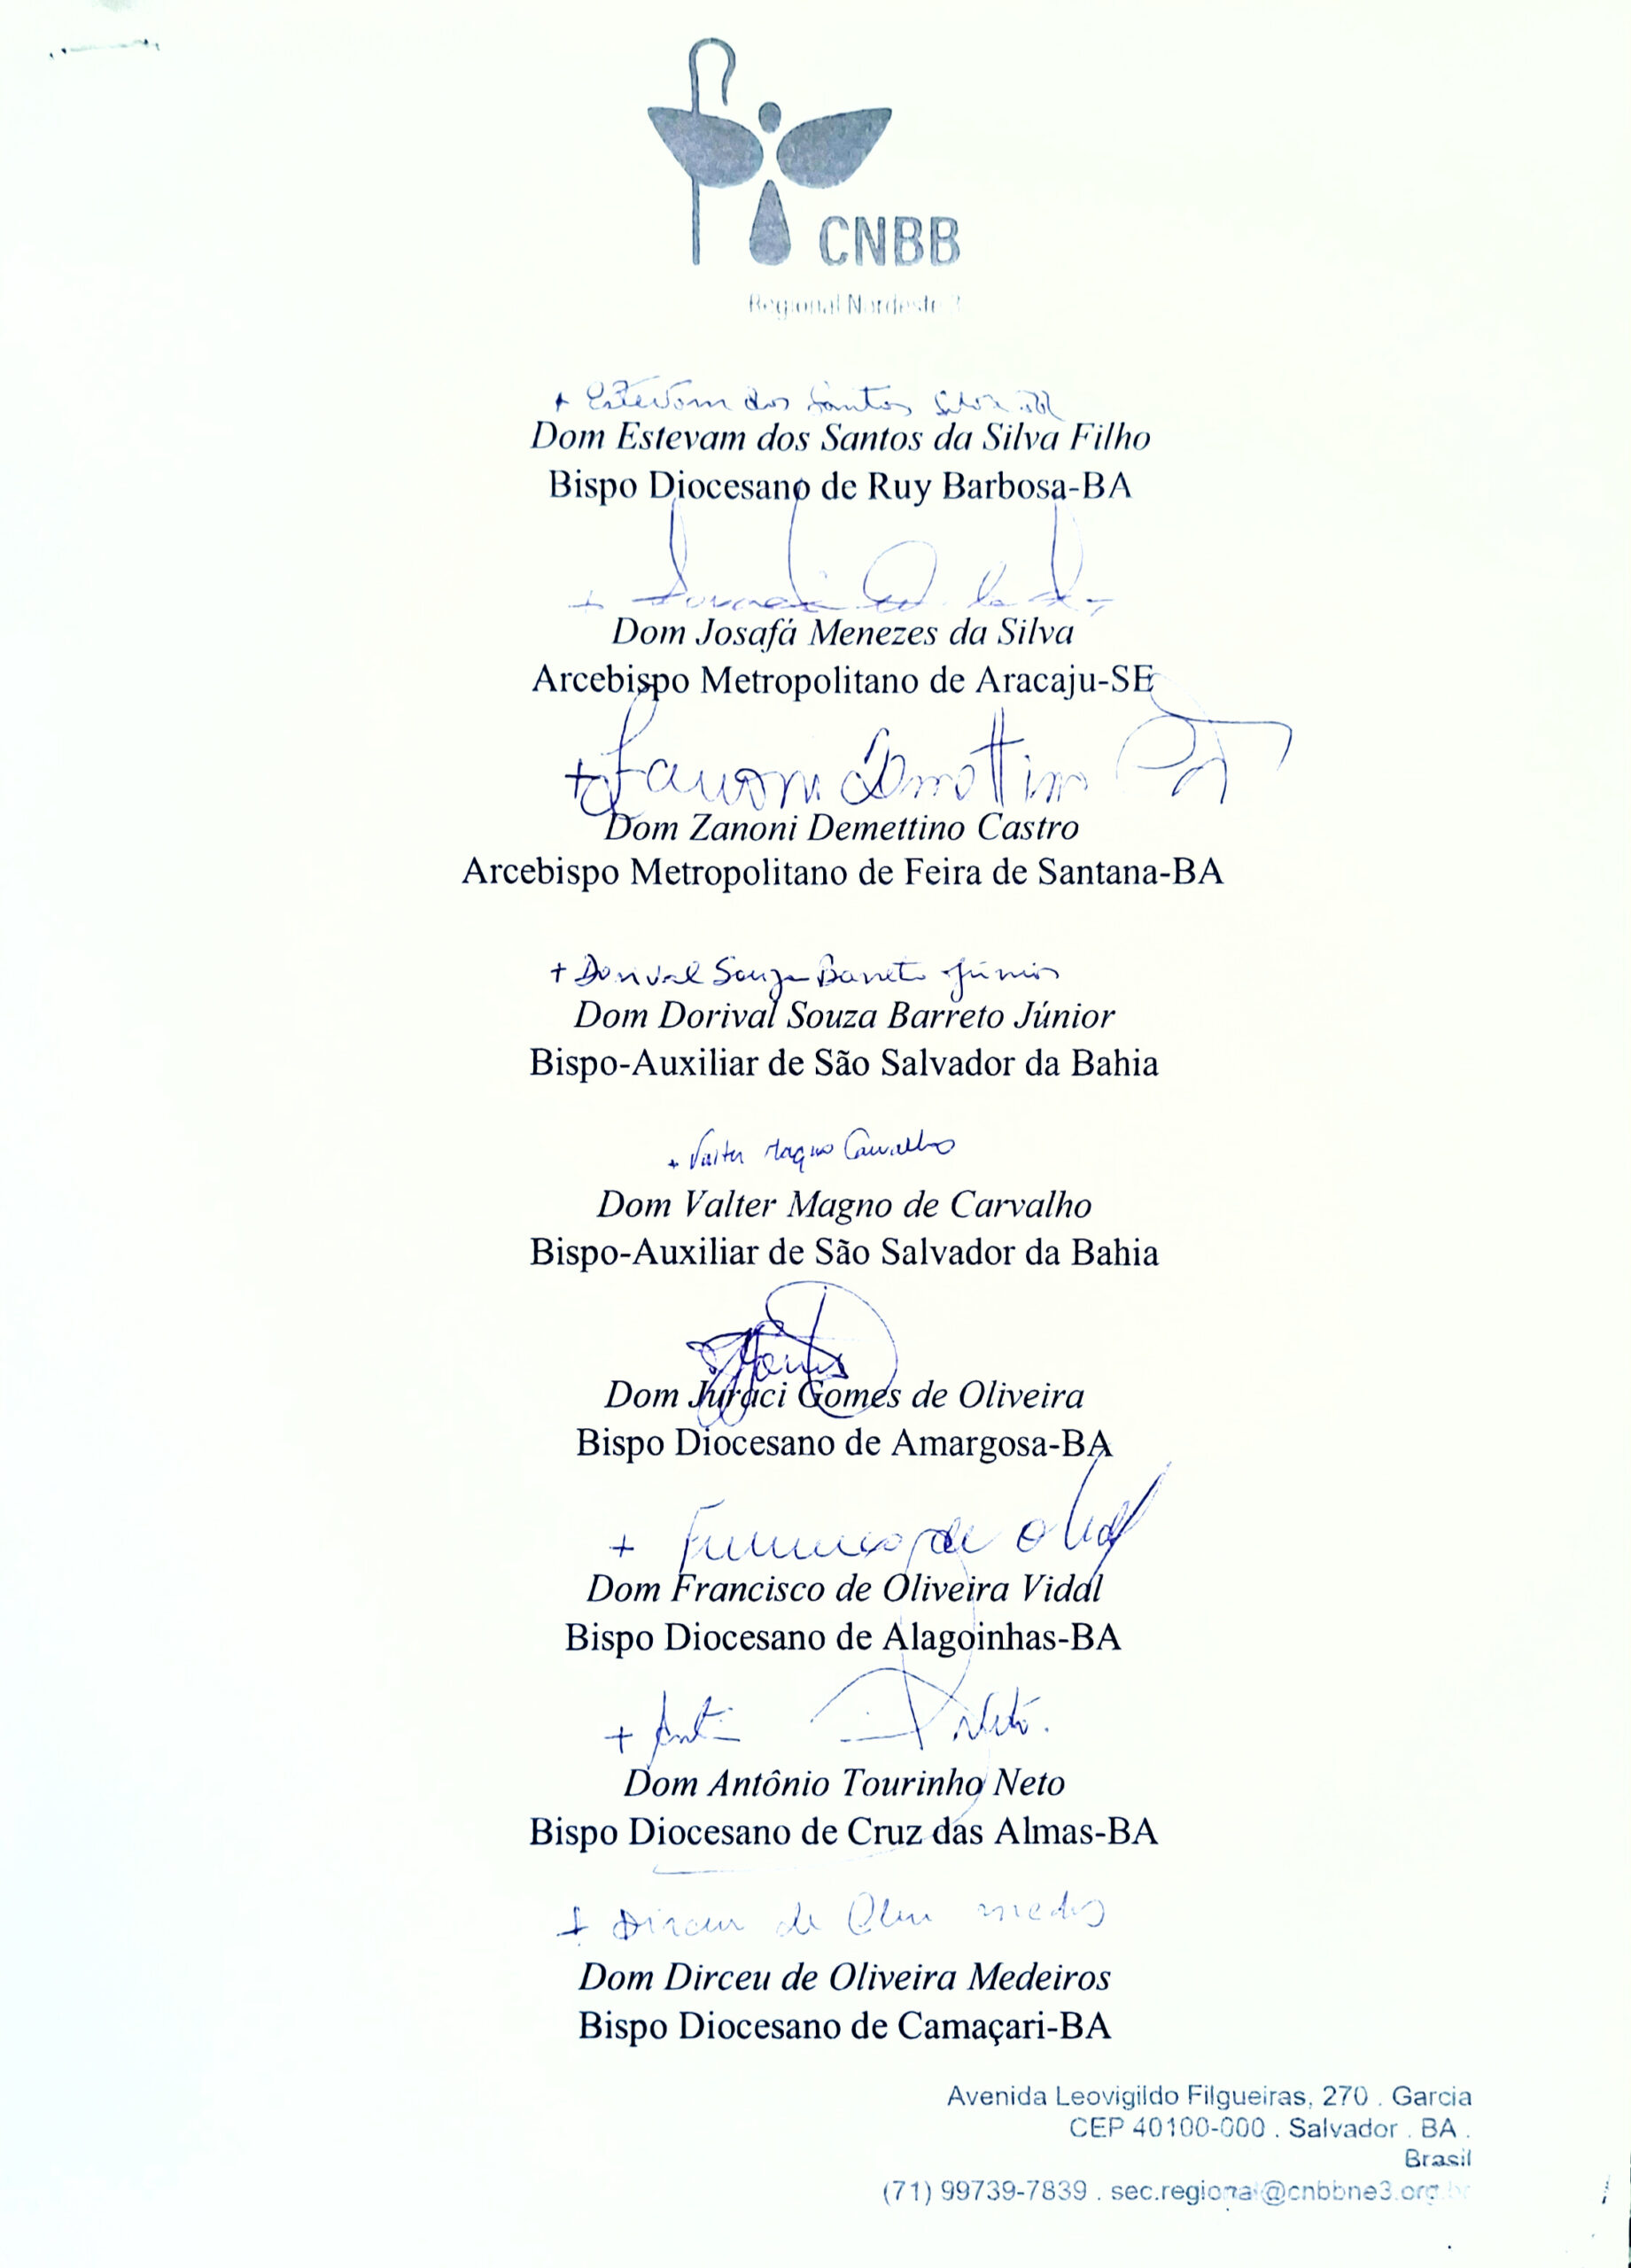 CNBB
Regional Nordeste 3
+ Estevam dos Santos Silva
Dom Estevam dos Santos da Silva Filho
Bispo Diocesano de Ruy Barbosa-BA
Dom Josafá Menezes da Silva
Arcebispo Metropolitano de Aracaju-SE
+ Zanoni Demettino
Dom Zanoni Demettino Castro
Arcebispo Metropolitano de Feira de Santana-BA
+ Dorival Souza Barreto Júnior
Dom Dorival Souza Barreto Júnior
Bispo-Auxiliar de São Salvador da Bahia
+ Valter Magno Carvalho
Dom Valter Magno de Carvalho
Bispo-Auxiliar de São Salvador da Bahia
Dom Juraci Gomes de Oliveira
Bispo Diocesano de Amargosa-BA
+ Francisco de
Dom Francisco de Oliveira Vidal
Bispo Diocesano de Alagoinhas-BA
+ Neto.
Dom Antônio Tourinho Neto
Bispo Diocesano de Cruz das Almas-BA
+ Dirceu de
Dom Dirceu de Oliveira Medeiros
Bispo Diocesano de Camaçari-BA
Avenida Leovigildo Filgueiras, 270 . Garcia
CEP 40100-000 . Salvador . BA .
Brasil
(71) 99739-7839 . sec.regional@cnbbne3.org.br